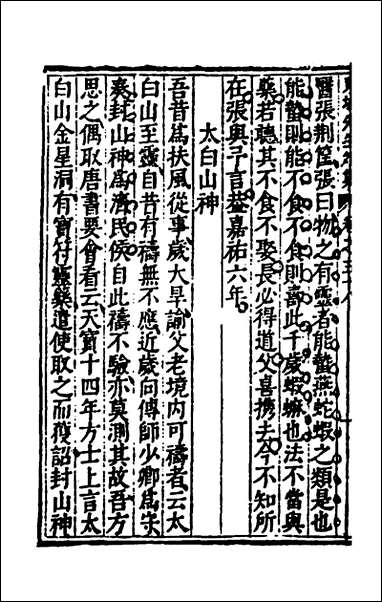 醫張荆筐張曰物之有靈者能蟄燕蛇蝦之類是也
能蟄則能不食不食則壽此千歲蝦蟇也法不當與
藥若聽其不食不娶長必得道父喜携去今不知所
在張與予言葢嘉祐六年
太白山神
吾昔爲扶風從事歲大旱諭父老境内可禱者云太
白山至靈自昔有禱無不應近歲向傳師少卿爲守
襄封山神爲濟民侯自此禱不驗亦莫測其故吾方
思之偶取唐書要會看云天寶十四年方士上言太
白山金星洞有寶符靈藥遣使取之而獲詔封山神